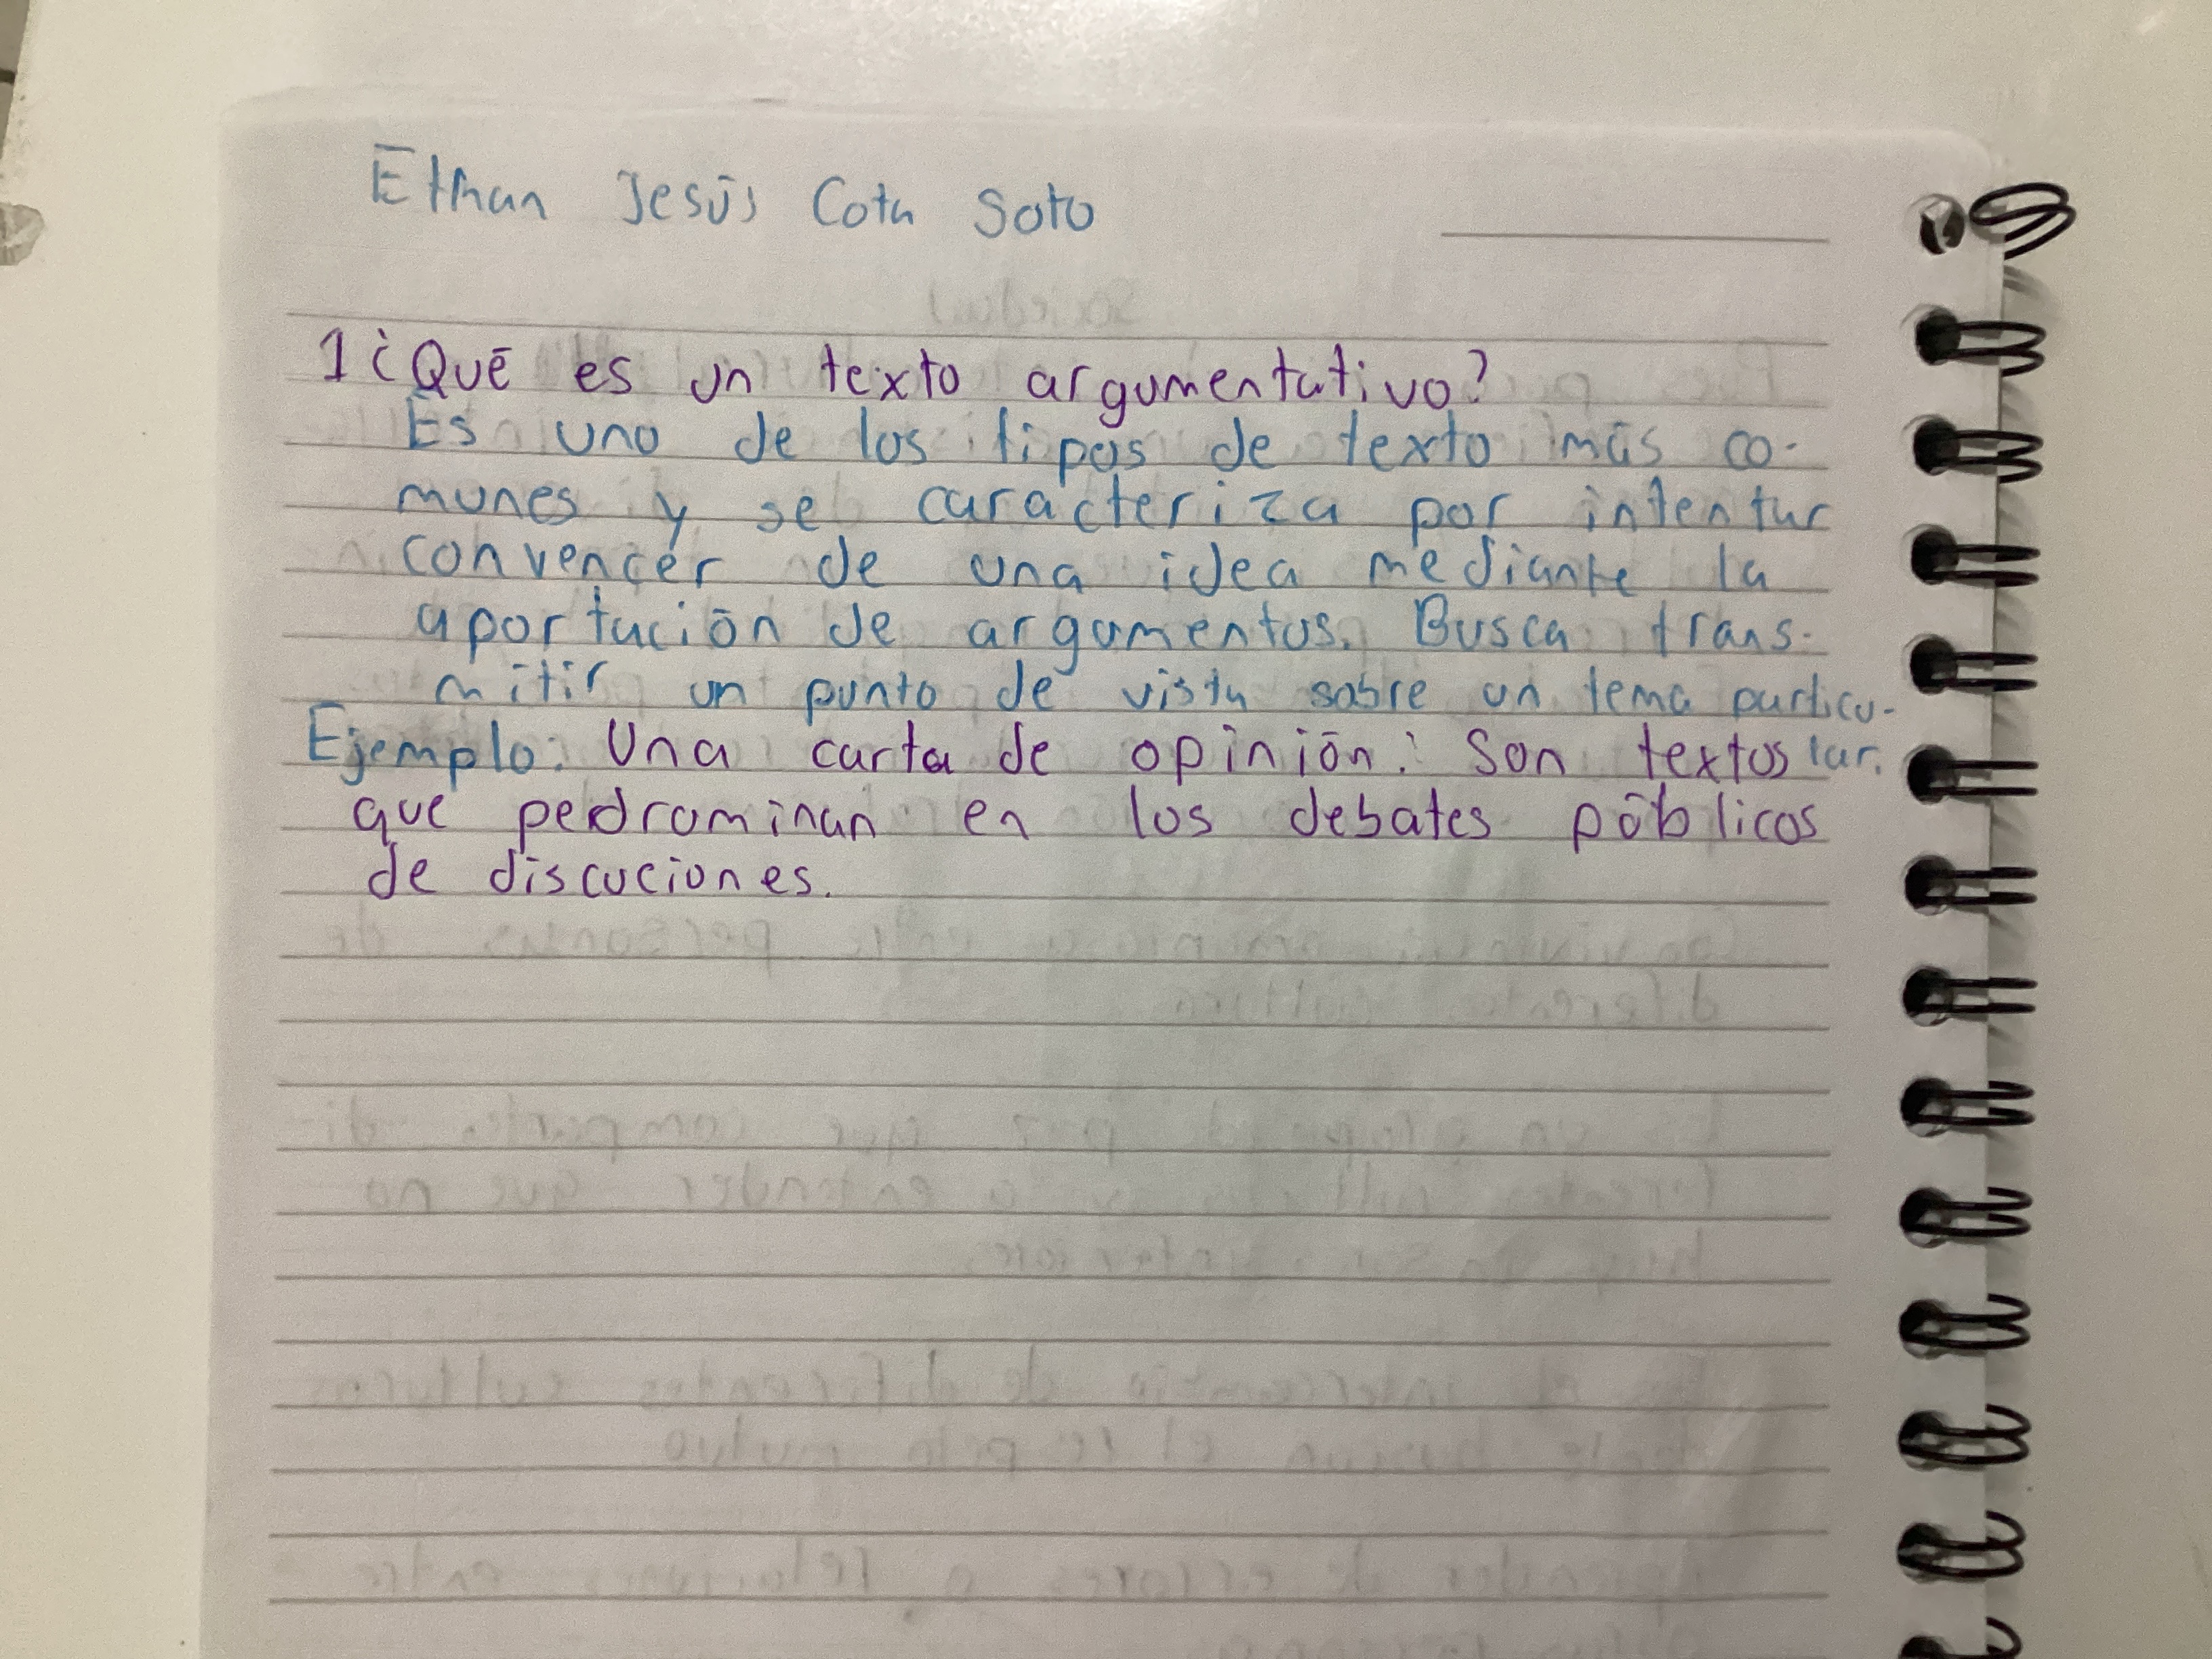 Ethan Jesús Cota Soto
1¿Qué es un texto argumentativo?
Es uno de los tipos de texto más co-
munes y se caracteriza por intentar
convencer de una idea mediante la
aportación de argumentos. Busca trans-
mitir un punto de vista sobre un tema particu-
lar.
Ejemplo: Una carta de opinión: Son textos
que pedrominan en los debates públicos
de discuciones.